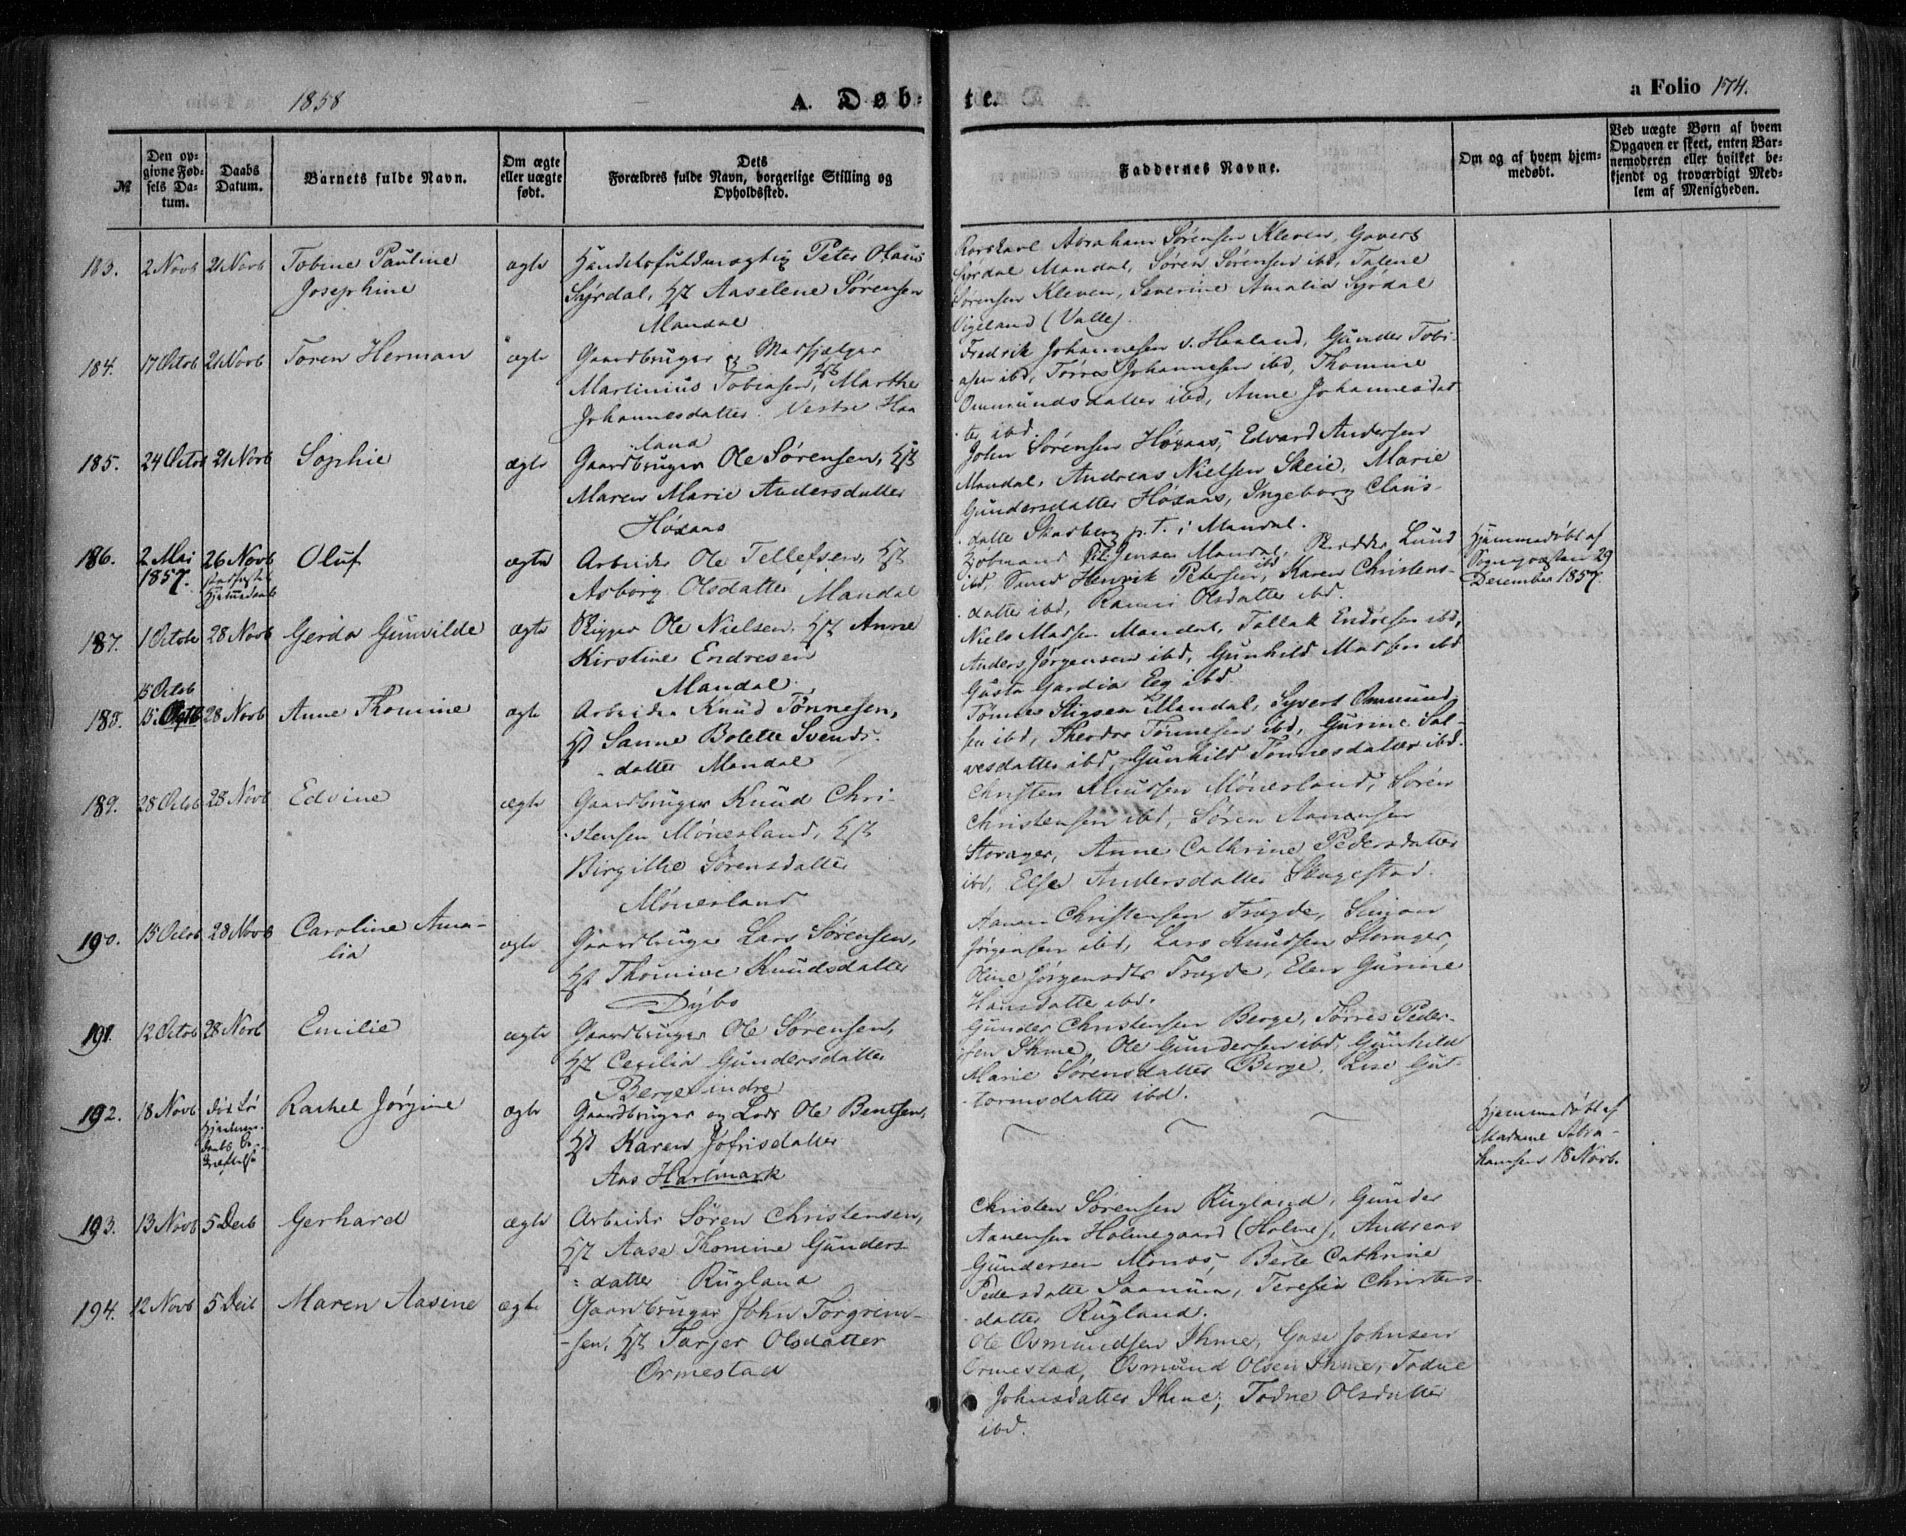 1858
A. Døb-
te.
a Folio 174.
№
Den op-
givne Fød-
sels Da-
tum.
Daabs
Datum.
Barnets fulde Navn.
Om ægte
eller uægte
født.
Dets
Forældres fulde Navn, borgerlige Stilling og
Opholdssted.
Faddernes Navne.
Om og af hvem hjem-
medøbt.
Ved uægte Børn af hvem
Opgaven er skeet, enten Bar-
nemoderen eller hvilket be-
kjendt og troværdigt Med-
lem af Menigheden.
183. 2 Novb 21 Novb Tobine Pauline
Josephine
ægte
Handelsfuldmægtig Peter Olaus
Syrdal, Hst Aaselene Sørensen
Mandal
Abraham Sørensen Kleven, Govert
Syrdal Mandal, Søren Sørensen ibd, Talene
Sørensen Kleven, Severine Amalia Syrdal
Vigeland (Valle).
184. 17 Octob 21 Novb Toren Herman
ægte
Gaardbruger og
Martinius Tobiasen, Hst Marthe
Johannesdatter. Vestre Haa
land
Fredrik Johannesen v. Haaland, Gunder Tobi-
asen ibd, Tørres Johannesen ibd, Thomine
Ommundsdatter ibd, Anne Johannesdat
ter ibd.
185. 24 Octob 21 Novb Sophie
ægte
Gaardbruger Ole Sørensen, Hst
Maren Marie Andersdatter
Høxaas
John Sørensen Høxaas, Edvard Andersen
Mandal, Andreas Nielsen Skeie, Marie
Gundersdatter Høxaas, Ingeborg Claus-
datter p. T. i Mandal.
186. 2 Mai
1857.
26 Novb
Oluf
ægte
Arbeider Ole Tellefsen, Hst
Asborg Olsdatter Mandal
Jensen Mandal, Lund
ibd, Henrik Petersen ibd, Karen Christens-
datter ibd, Olsdatter ibd.
Hjemmedøbt af
Sognepræsten 29
December 1857.
187. 1 Octob 28 Novb Gerda Gunvilde
ægte
Rigger Ole Nielsen, Hst Anne
Kirstine Endresen
Mandal.
Niels Madsen Mandal, Tallak Endresen ibd,
Anders Jørgensen ibd, Gunhild Madsen ibd
Gusta Gardia Eeg ibd.
188. 15 Octob
15 28 Novb Anne Thomine
ægte
Arbeider Knud Tønnesen,
Hst Sanne Bolette Svends-
datter Mandal
Tønnes Stigsen Mandal, Syvert Ommund-
sen ibd, Theodor Tønnesen ibd, Gurine Sal-
vesdatter ibd, Gunhild Tønnesdatter ibd.
189. 28 Octob 28 Novb Edvine
ægte
Gaardbruger Knud Chri-
stensen Mønesland, Hst
Birgitte Sørensdatter
Mønesland
Christen Knudsen Mønesland, Søren
Christensen ibd, Søren Aanensen
Storager, Anne Cathrine Pedersdatter
ibd, Else Andersdatter Skagestad.
190. 15 Octob 28 Novb Caroline Ama-
lia
ægte
Gaardbruger Lars Sørensen,
Hst Thomine Knudsdatter
Dybo
Aanen Christensen Tregde, Simon
Jørgensen ibd, Lars Knudsen Storager,
Oline Jørgensdtr Tregde, Elen Gurine
Hansdatter ibd.
191. 12 Octob 28 Novb Emilie
ægte
Gaardbruger Ole Sørensen,
Hst Cecilia Gundersdatter
Berge indre
Gunder Christensen Berge, Tørres Peder-
sen Ihme, Ole Gundersen ibd, Gunhild
Marie Sørensdatter Berge, Lise Gut-
tormsdatter ibd.
192. 18 Novb
Rachel Jørgine
ægte
Gaardbruger og Lods Ole Bentsen,
Hst Karen Jofrisdatter
Aas Hartmark
Hjemmedøbt af
Madame
18 Novb.
193. 13 Novb 5 Decb Gerhard
ægte
Arbeider Søren Christensen,
Hst Aase Thomine Gunders-
datter Rugland
Christen Sørensen Rugland, Gunder
Aanensen Holmegaard (Holme), Andreas
Gundersen Mones, Berte Cathrine
Pedersdatter Saanum, Teresia Christens-
datter Rugland.
194. 12 Novb 5 Decb Maren Aasine
ægte
Gaardbruger John Torgrim-
sen, Hst Tarjer Olsdatter
Ormestad
Ole Osmundsen Ihme, Johnsen
Ormestad, Osmund Olsen Ihme, Todne
Johnsdatter Ihme, Todne Olsdatter
ibd.